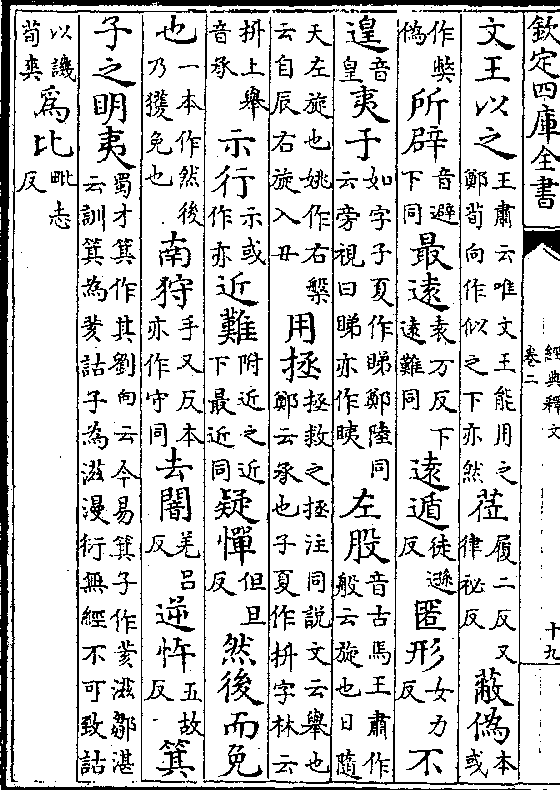 欽定四庫全書
經典釋文
卷二
十九
文王以之王肅云唯文王能用之鄭荀向作似之下亦然莅履二反又律祕反蔽偽本或
作弊偽所辟音避下同最逺袁万反下逺難同逺遁徒遜反匿形女力反不
遑音皇夷于如字子夏作睇鄭陸同云旁視曰睇亦作眱左股音古馬王肅作般云旋也日隨
天左旋也姚作右槃云自辰右旋入丑用拯拯救之拯注同説文云舉也鄭云承也子夏作抍字林云
抍上舉音承示行示或作亦近難附近之近下最近同疑憚但旦反然後而免
也一本作然後乃獲免也南狩手又反本亦作守同去闇羌呂反逆忤五故反箕
子之明夷蜀才箕作其劉向云今易箕子作荄滋鄒湛云訓箕為荄詁子為滋漫衍無經不可致詰
以譏荀爽為比毗志反